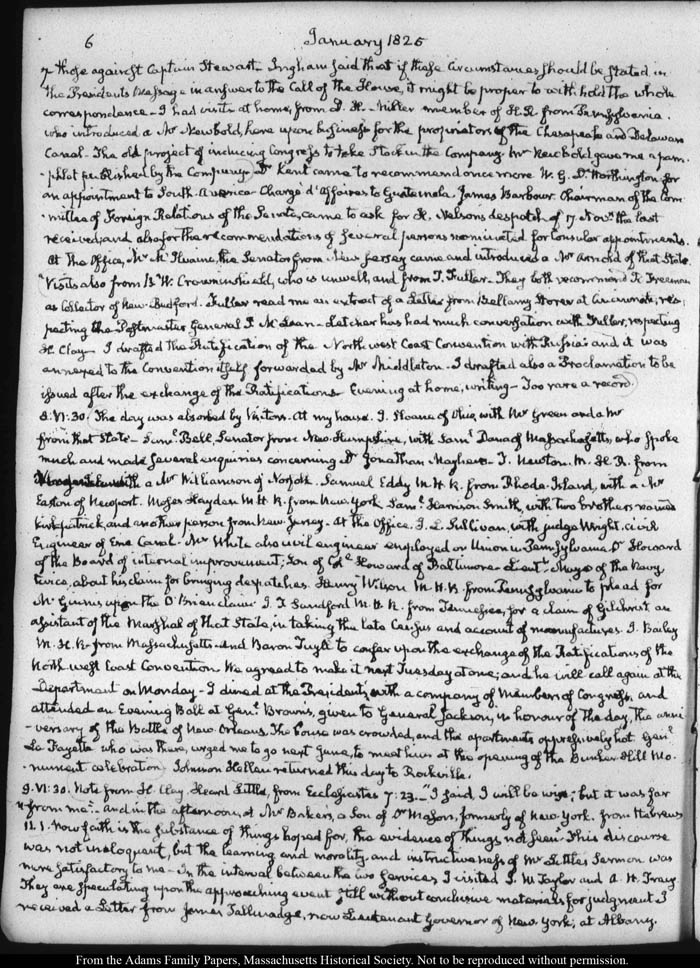 6 January 1825
& those against Captain Stewart. Ingham said that if these circumstances should be stated in
the Presidents Message in answer to the Call of the House, it might be proper to withhold the whole
correspondence. I had visits at home, from D. H. Miller member of H.R. from Pennsylvania.
who introduced a Mr Newbold, here upon business for the proprietors of the Chesapeake and Delaware
Canal. The old project of inducing Congress to take Stock in the Company. Mr Newbold gave me a pam-
-phlet published by the Company. Dr Kent came to recommend once more W. G. D. Worthington for
an appointment to South-America Chargé d'Affaires to Guatemala. James Barbour Chairman of the Com-
mittee of Foreign Relations of the Senate, came to ask for H. Nelsons despatch of 17 Novr the last
received; and also for the recommendations of several persons nominated for Consular appointments.
At the Office, Mr McIlvaine, the Senator from New Jersey came and introduced a Mr Arnold of that State.
Visits also from B. W. Crowninshield, who is unwell, and from T. Fuller. They both recommend R. Freeman
as Collector of New-Bedford. Fuller read me an extract of a Letter from Bellamy Storer at Cincinnati, res-
pecting the Postmaster General J. McLean. Letcher has had much conversation with Fuller, respecting
H. Clay. I drafted the Ratification of the North west Coast Convention with Russia and it was
annexed to the Convention itself forwarded by Mr Middleton. I drafted also a Proclamation to be
issued after the exchange of the Ratifications. Evening at home, writing. Too rare a record.
8. VI:30. The day was absorbed by Visitors. At my house. J. Sloane of Ohio, with Mr Green and a Mr
from that State. Saml Bell, Senator from New-Hampshire, with Saml Dana of Massachusetts, who spoke
much and made several enquiries concerning Dr Jonathan Mayhew. T. Newton. M.H.R. from
with a Mr Williamson of Norfolk. Samuel Eddy M.H.R. from Rhode-Island, with a Mr
Easton of Newport. Moses Hayden M.H.R. from New-York. Saml Harrison Smith, with two brothers named
Kirkpatrick, and another person from New Jersey. At the Office. J. L. Sullivan, with Judge Wright, civil
Engineer of Erie Canal. Mr White also civil engineer employed on Union in Pennsylvania. Dr Howard
of the Board of internal improvement, Son of Coll Howard of Baltimore. Lieutt Mayo of the Navy
twice, about his claim for bringing despatches. Henry Wilson M.H.R. from Pennsylvania to plead for
McGinnis upon the O'Brien claim. J. T. Sandford M.H.R. from Tennessee, for a claim of Gilchrist, an
assistant of the Marshal of that State, in taking the late Census and account of manufactures. J. Bailey
M.H.R. from Massachusetts. And Baron Tuyll to confer upon the exchange of the Ratifications of the
North west Coast Convention. We agreed to make it next Tuesday at one; and he will call again at the
Department on Monday. I dined at the Presidents, with a company of Members of Congress, and
attended an Evening Ball at Genl Brown's, given to General Jackson, in honour of the day, the anni-
-versary of the Battle of New Orleans. The house was crowded, and the apartments oppressively hot. Genl
La Fayette who was there, urged me to go next June, to meet him at the opening of the Bunker Hill Mo-
-nument celebration. Johnson Hellen returned this day to Rockville.
9. VI:30. Note from H. Clay. Heard Little, from Ecclesiastes 7:23. "I said, I will be wise; but it was far
from me." And in the afternoon, at Mr Bakers, a Son of Dr Mason, formerly of New York. from Hebrews
11.1. Now faith is the substance of things hoped for, the evidence of things not seen. This discourse
was not ineloquent, but the learning and morality and instructiveness of Mr Littles Sermon was
more satisfactory to me. In the interval between the two services I visited J. W. Taylor and A. H. Tracy.
They are speculating upon the approaching event, still without conclusive materials for judgment. I
received a Letter from James Tallmadge, now Lieutenant Governor of New York, at Albany.
From the Adams Family Papers, Massachusetts Historical Society. Not to be reproduced without permission.